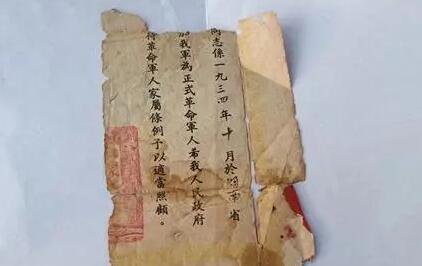 同志係一九三四年十月於湖南省
加我軍為正式革命軍人希我人民政府
待革命軍人家屬條例予以適當照顧。